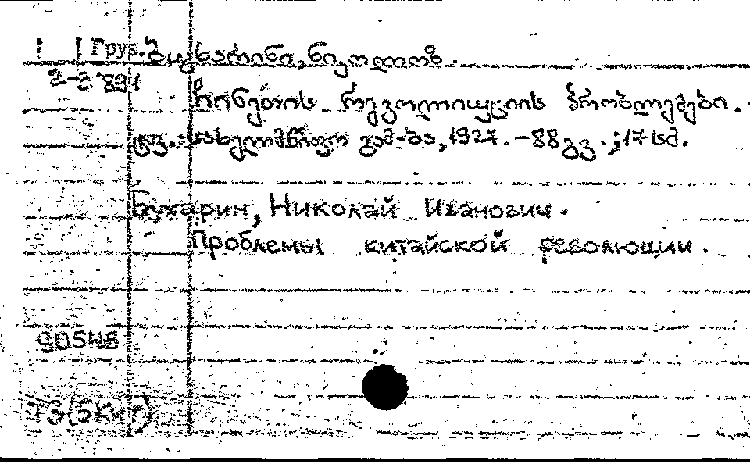 Груз. ბუხარინი, ნიკოლოზ.
2-3 894
ჩინეთის რევოლიუციის პრობლემები.
ტფ., სახელმწიფო გამ-ბა, 1927. - 88 გვ.; 17 სმ.
Бухарин, Николай Иванович.
Проблемы китайской революции.
90548